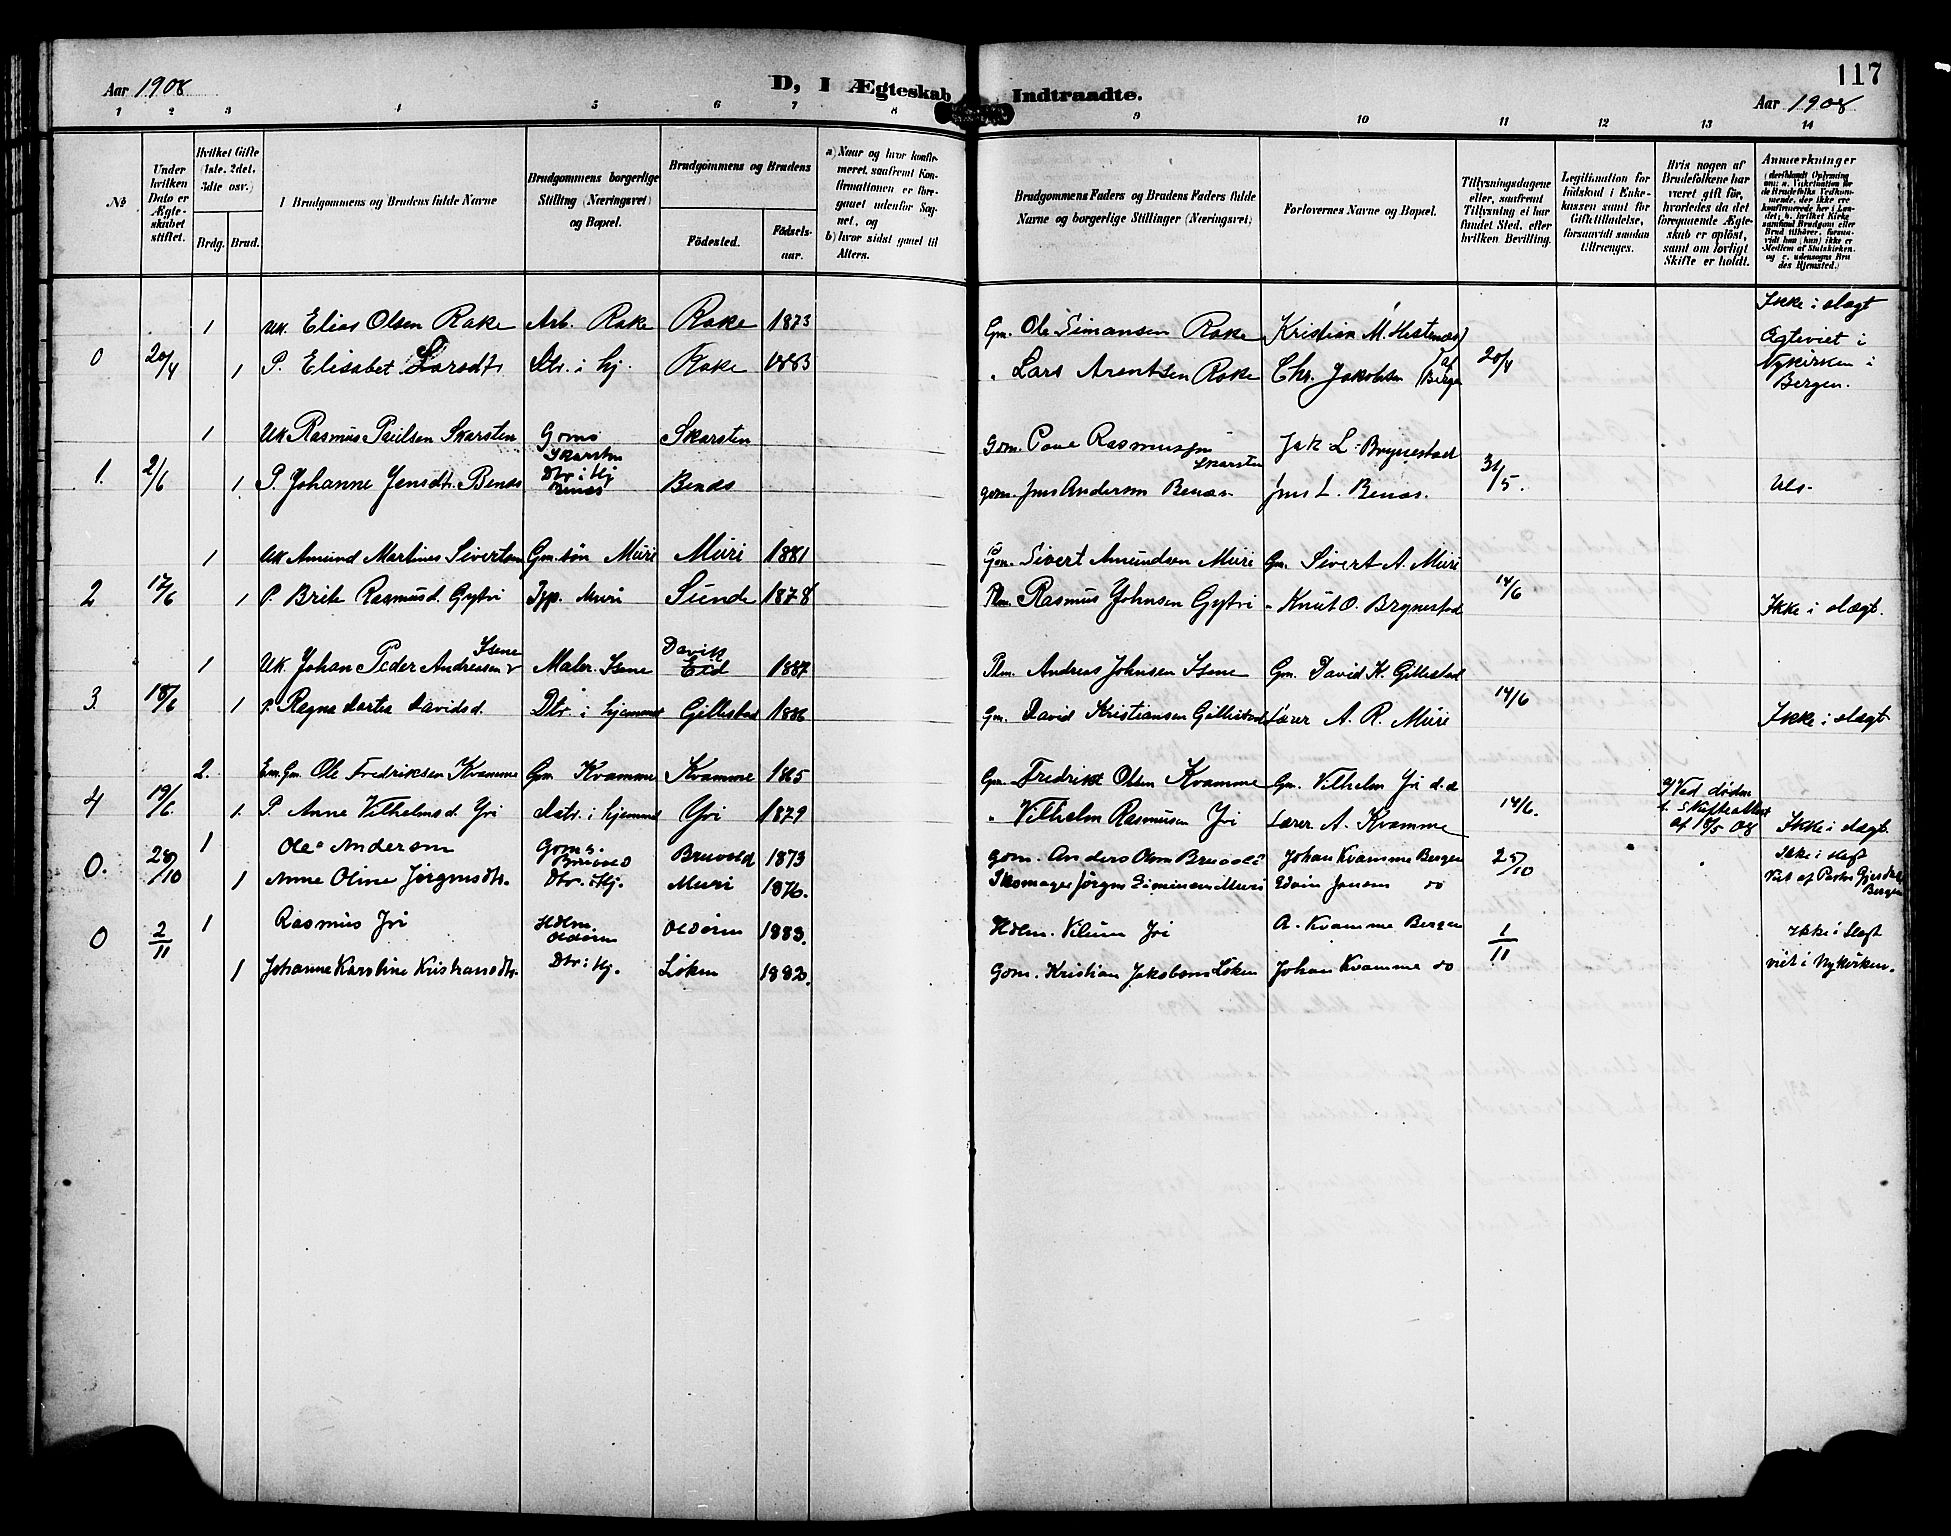 117
Aar 1908
D, I Ægteskab Indtraadte.
Aar 1908
1 2 3 4 5 6 7 8 9 10 11 12 13 14
No
Under hvilken Dato er Ægteskabet stiftet.
Hvilket Gifte (1ste. 2det. 3die osv.)
Brdg. Brud.
Brudgommens og Brudens fulde Navne
Brudgommens borgerlige Stilling (Næringsvei) og Bopæl.
Brudgommens og Brudens
Födested.
Födselsaar.
a) Naar og hvor konfirmeret, saafremt Konfirmationen er foregaaet udenfor Sognet, og
b) hvor sidst gaaet til Alters.
Brudgommens Faders og Brudens Faders fulde Navne og borgerlige Stillinger (Næringsvei)
Forlovernes Navne og Bopæl.
Tillysningsdagene eller, saafremt Tillysning ei har fundet Sted, efter hvilken Bevilling.
Legitimation for Indskud i Enkekassen samt for Giftetilladelse, forsaavidt saadan tiltrænges.
Hvis nogen af Brudefolkene har været gift før, hvorledes da det foregaaende Ægteskab er opløst, samt om lovligt Skifte er holdt.
Anmærkninger
1 Uk. Elias Olsen Rake Arb. Rake Rake 1873 Gm. Ole Simonsen Rake Kristian M. Hestenæs Ikke i slægt
0 20/4 1 P. Elisabet Larsdtr Dtr. i hj. Rake 1883 " Lars Arentsen Rake Chr. Jakobsen af Bergen 20/4 Ægteviet i Nykirken i Bergen.
1 Uk Rasmus Paulsen Skarsten Gmns Skarsten Skarsten Gdm. Paul Rasmussen Skarsten Jak L. Brynestad
1. 2/6 1 P. Johanne Jensdtr. Benæs Dtr. i Hj Benæs Benæs gdm. Jens Andersen Benæs Jens L. Benæs. 31/5. Uls.
1 Uk Amund Martinus Sivertsen Gm.søn Muri Muri 1881 Gm. Sivert Amundsen Muri Gm. Sivert A. Muri
2 17/6 1 P. Brite Rasmusd. Gytri Muri Sunde 1878 Plm. Rasmus Johnsen Gytri " Knut O. Brynestad 14/6 Ikke i slægt.
1 Uk. Johan Peder Andreasen Isene Maler. Isene Davik Eid 1887 Plm. Andreas Johnsen Isene Gm. David K. Gillestad
3. 18/6 1 P. Ragna Marta Davidsd. Dtr. i hjemmet Gillestad 1886 Gm. David Kristiansen Gillestad Lærer A. R. Muri 14/6 Ikke i slægt
2. Em. Gm. Ole Fredriksen Kvamme Gm Kvamme Kvamme 1865 Gm. Fredrik Olsen Kvamme Gm. Vilhelm Yri d.æ
4 19/6. 1. P. Anne Vilhelmsd. Yri datr. i hjemmet Yri 1879 " Vilhelm Rasmussen Yri Lærer A. Kvamme 14/6. Ved døden Skifteattest af 18/5 08 Ikke i slægt.
1 Ole Andersen Gdms. Bruvold Bruvold 1873 gdm. Anders Olsen Bruvold Johan Kvamme Bergen Ikke i slegt
0. 28/10 1 Anne Oline Jørgensdtr. Dtr. i Hj. Muri 1876. Skomager Jørgen Simensen Muri Edvin Jensen do 25/10 Viet af Pastor Gjesdahl Bergen
1 Rasmus Yri Hdlm. Oldøren Oldøren 1883. Hdlm. Vilum Yri A. Kvamme Bergen Ikke i slegt
0 2/11 1 Johanne Karoline Kristiansdtr. Dtr. i Hj. Løken 1882. gdm. Kristian Jakobsen Løken Johan Kvamme do 1/11 viet i Nykirken.